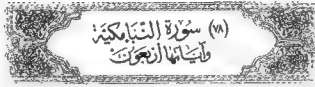 (٧٨) سُورَةُ النَّبَإِ مَكِّيَّة
وَآيَاتُهَا أَرْبَعُونَ